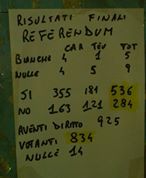 RISULTATI FINALI
REFERENDUM
CAR TEV TOT
BIANCHE 4 1 5
NULLE 4 5 9
SI 355 181 536
NO 163 121 284
AVENTI DIRITTO 925
VOTANTI 834
NULLE 14